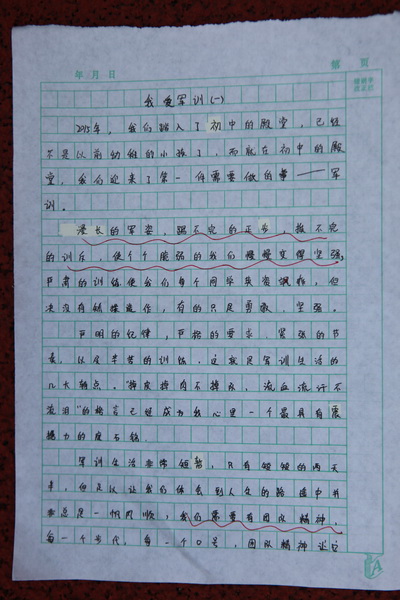 年 月 日
第 页
我爱军训(一)
2015年,我们踏入了初中的殿堂,已经
不是以前幼稚的小孩了,而就在初中的殿
堂,我们迎来了第一件需要做的事——军
训。
漫长的军姿,踢不完的正步,挨不完
的训斥,使个个脆弱的我们慢慢变得坚强,
严肃的训练使我们每个同学英姿飒爽,但
决没有矫揉造作,有的只是勇敢,坚强。
严明的纪律,严格的要求,紧张的节
奏,以及辛苦的训练,这就是军训生活的
几大特点。“掉皮掉肉不掉队,流血流汗不
流泪”的格言已经成为我心里一个最具有震
撼力的座右铭。
军训生活非常短暂,只有短短的两天
半,但足以让我们体会到人生的路途中并
非总是一帆风顺,我们需要有团队精神,
每一个步伐,每一个口号,团队精神让它